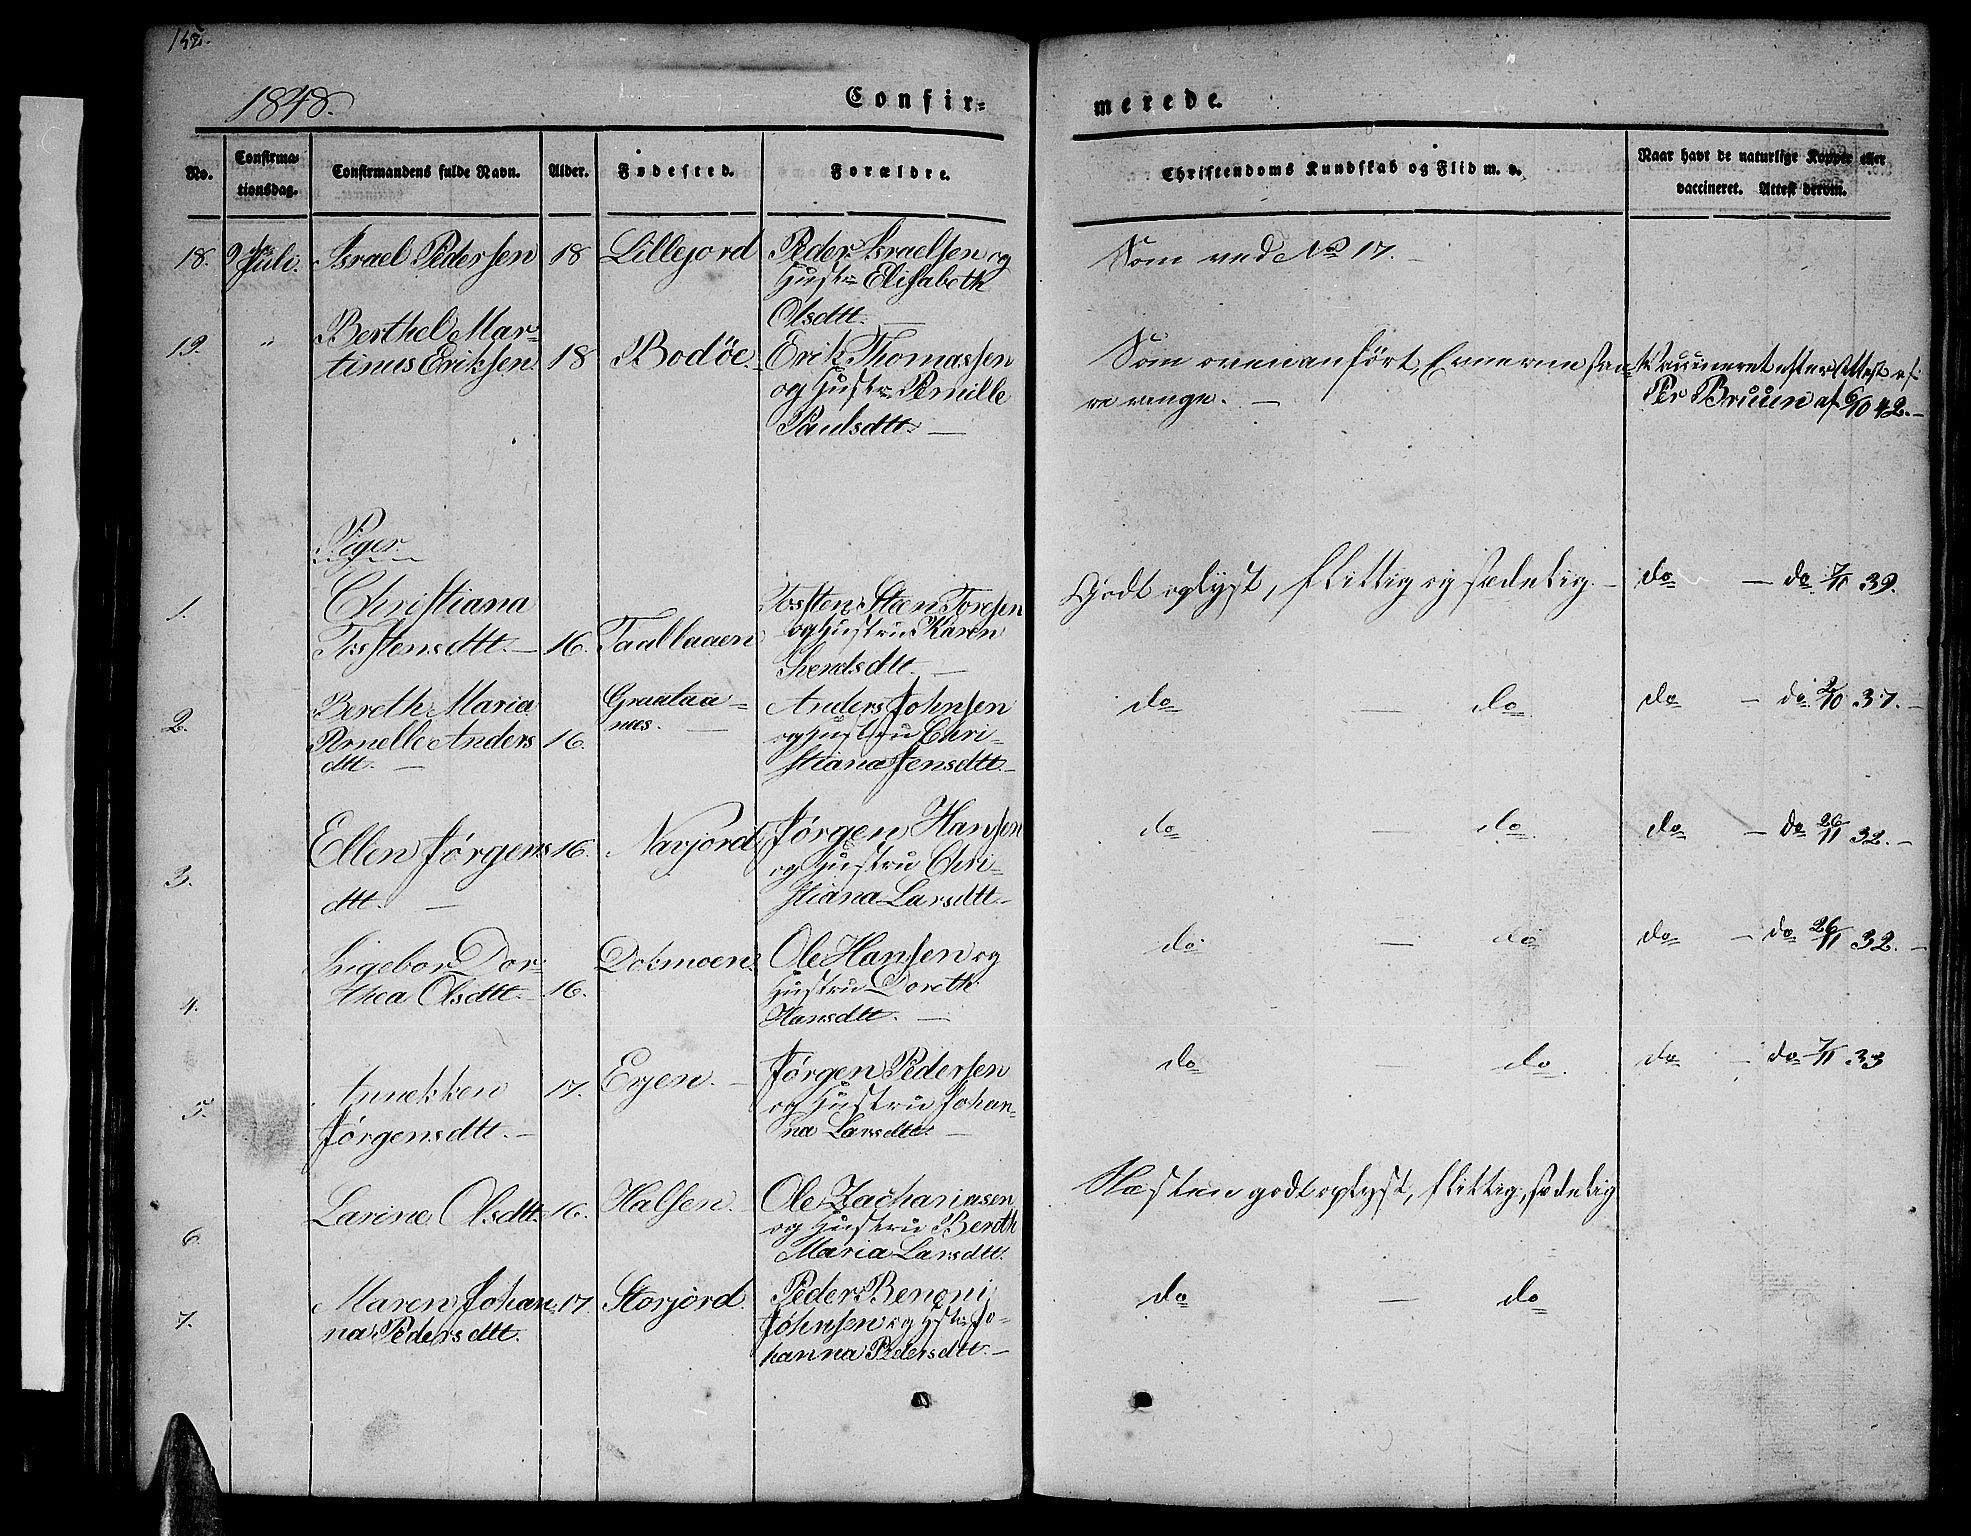 152.
1848.
Confir=
merede.
No.
Confirma-
tionsdag.
Confirmandens fulde Navn.
Alder.
Fødested.
Forældre.
Christendoms Kundskab og Flid m. v.
Naar havt de naturlige Kopper eller
vaccineret. Attest derom.
18. 9de Juli. Israel Pedersen 18 Lillejord Peder Israelsen og
Hustr Elisabeth
Olsdtt.
Som ved No 17.
19. " Berthel Mar-
tinus Eriksen. 18 Bodøe. Erik Thomassen
og Hustr Pernille
Paulsdtt.
Som ovenanført, Evnerne
ringe.
Vaccineret efter Attest af
Per Bruun af 6/10 42.
Piger.
1. Christiana
Tostensdtt. 16. Taallaaen Tosten Steen Toresen
og Hustrue Karen
Godt oplyst, flittig og sædelig. do — do 7/11 39.
2. Bereth Maria
Pernelle Anders
dtt. 16. Graataa=
næs. Anders Johnsen
og Hustru Chri-
stiana Jensdtt.
do — do. do — do. 2/10 37.
3. Ellen Jørgens
dtt. 16. Navjord Jørgen Hansen
og Hustru Chri-
stiana Larsdtt.
do — do do — do 26/11 32.
4. Ingebor Dor-
thea Olsdtt. 16. Dokmoen. Ole Hansen og
Hustru Doreth
Hansdtt.
do — do do — do 26/11 32.
5. Annekken
Jørgensdtt. 17. Evjen. Jørgen Pedersen
og Hustru Johan-
na Larsdtt.
do do do — do 7/11 33
6. Larine Olsdtt. 16. Halsen. Ole Zachariasen
og Hustru Bereth
Maria Larsdtt.
Næsten godt oplyst, flittig, sædelig
7. Maren Johan-
na Pedersdtt. 17. Storjord. Peder Benoni
Johnsen og Hstr Jo-
hanna Pedersdtt.
do — do